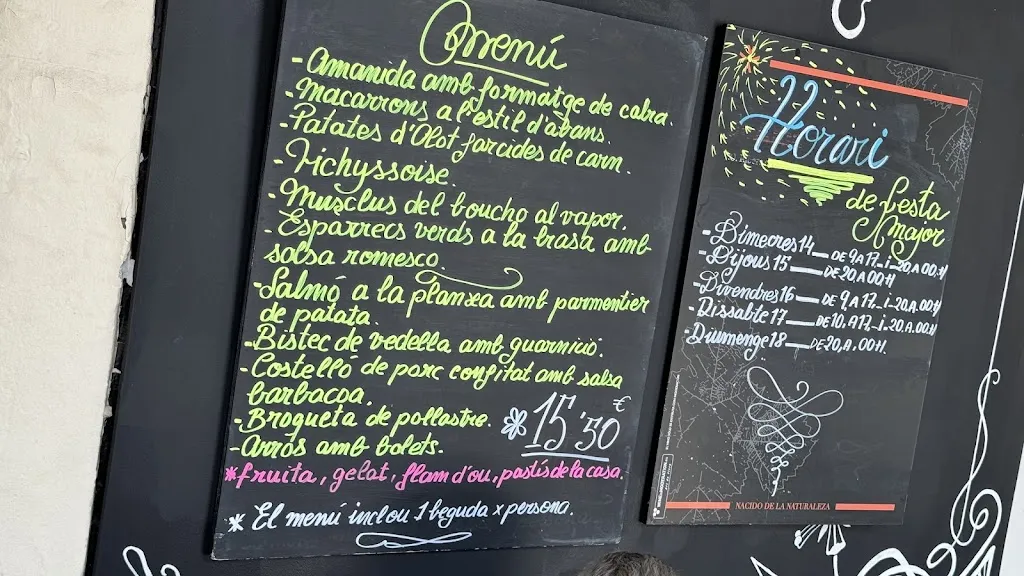 menú
- Amanida amb formatge de cabra.
- Macarrons a l'estil d'abans.
- Patates d'Olot farcides de carn.
- Vichyssoise.
- Musclus del boucho al vapor.
- Esparrecs verds a la brasa amb
salsa romesco.
- Salmó a la planxa amb parmentier
de patata.
- Bistec de vedella amb guarnició.
- Costelló de porc confitat amb salsa
barbacoa.
- Broqueta de pollastre.
- Arròs amb bolets.
15'50 €
* fruita, gelat, flam d'ou, pastís de la casa.
* El menú inclou 1 beguda x persona.
Horari
de festa
Major
- Dimecres 14 — DE 9 A 17 - i - 20. A 00 H
- Dijous 15 — DE 20. A 00 H
- Divendres 16 — DE 9 A 17 - i - 20. A. 00 H
- Dissabte 17 — DE 10. A 17 - i - 20. A. 00 H
- Diumenge 18 — DE 20. A. 00 H.
NACIDO DE LA NATURALEZA